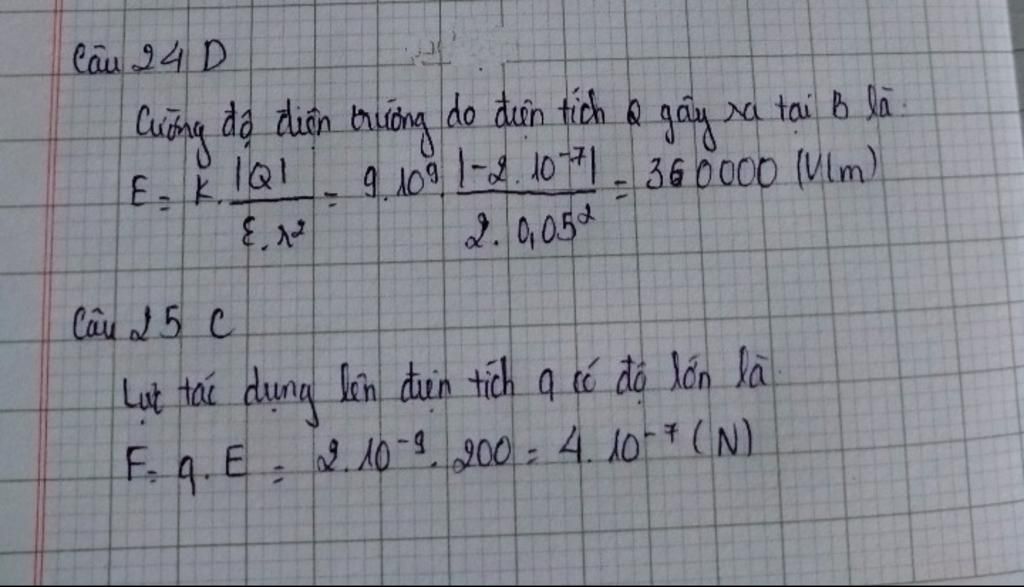 Câu 24 D
Cường độ điện trường do điện tích Q gây ra tại B là:
E = k. |Q| / ε.r² = 9.10⁹. |-2.10⁻⁷| / 2.0,05² = 360000 (V/m)
Câu 25 C
Lực tác dụng lên điện tích q có độ lớn là
F = q.E = 2.10⁻⁹.200 = 4.10⁻⁷ (N)